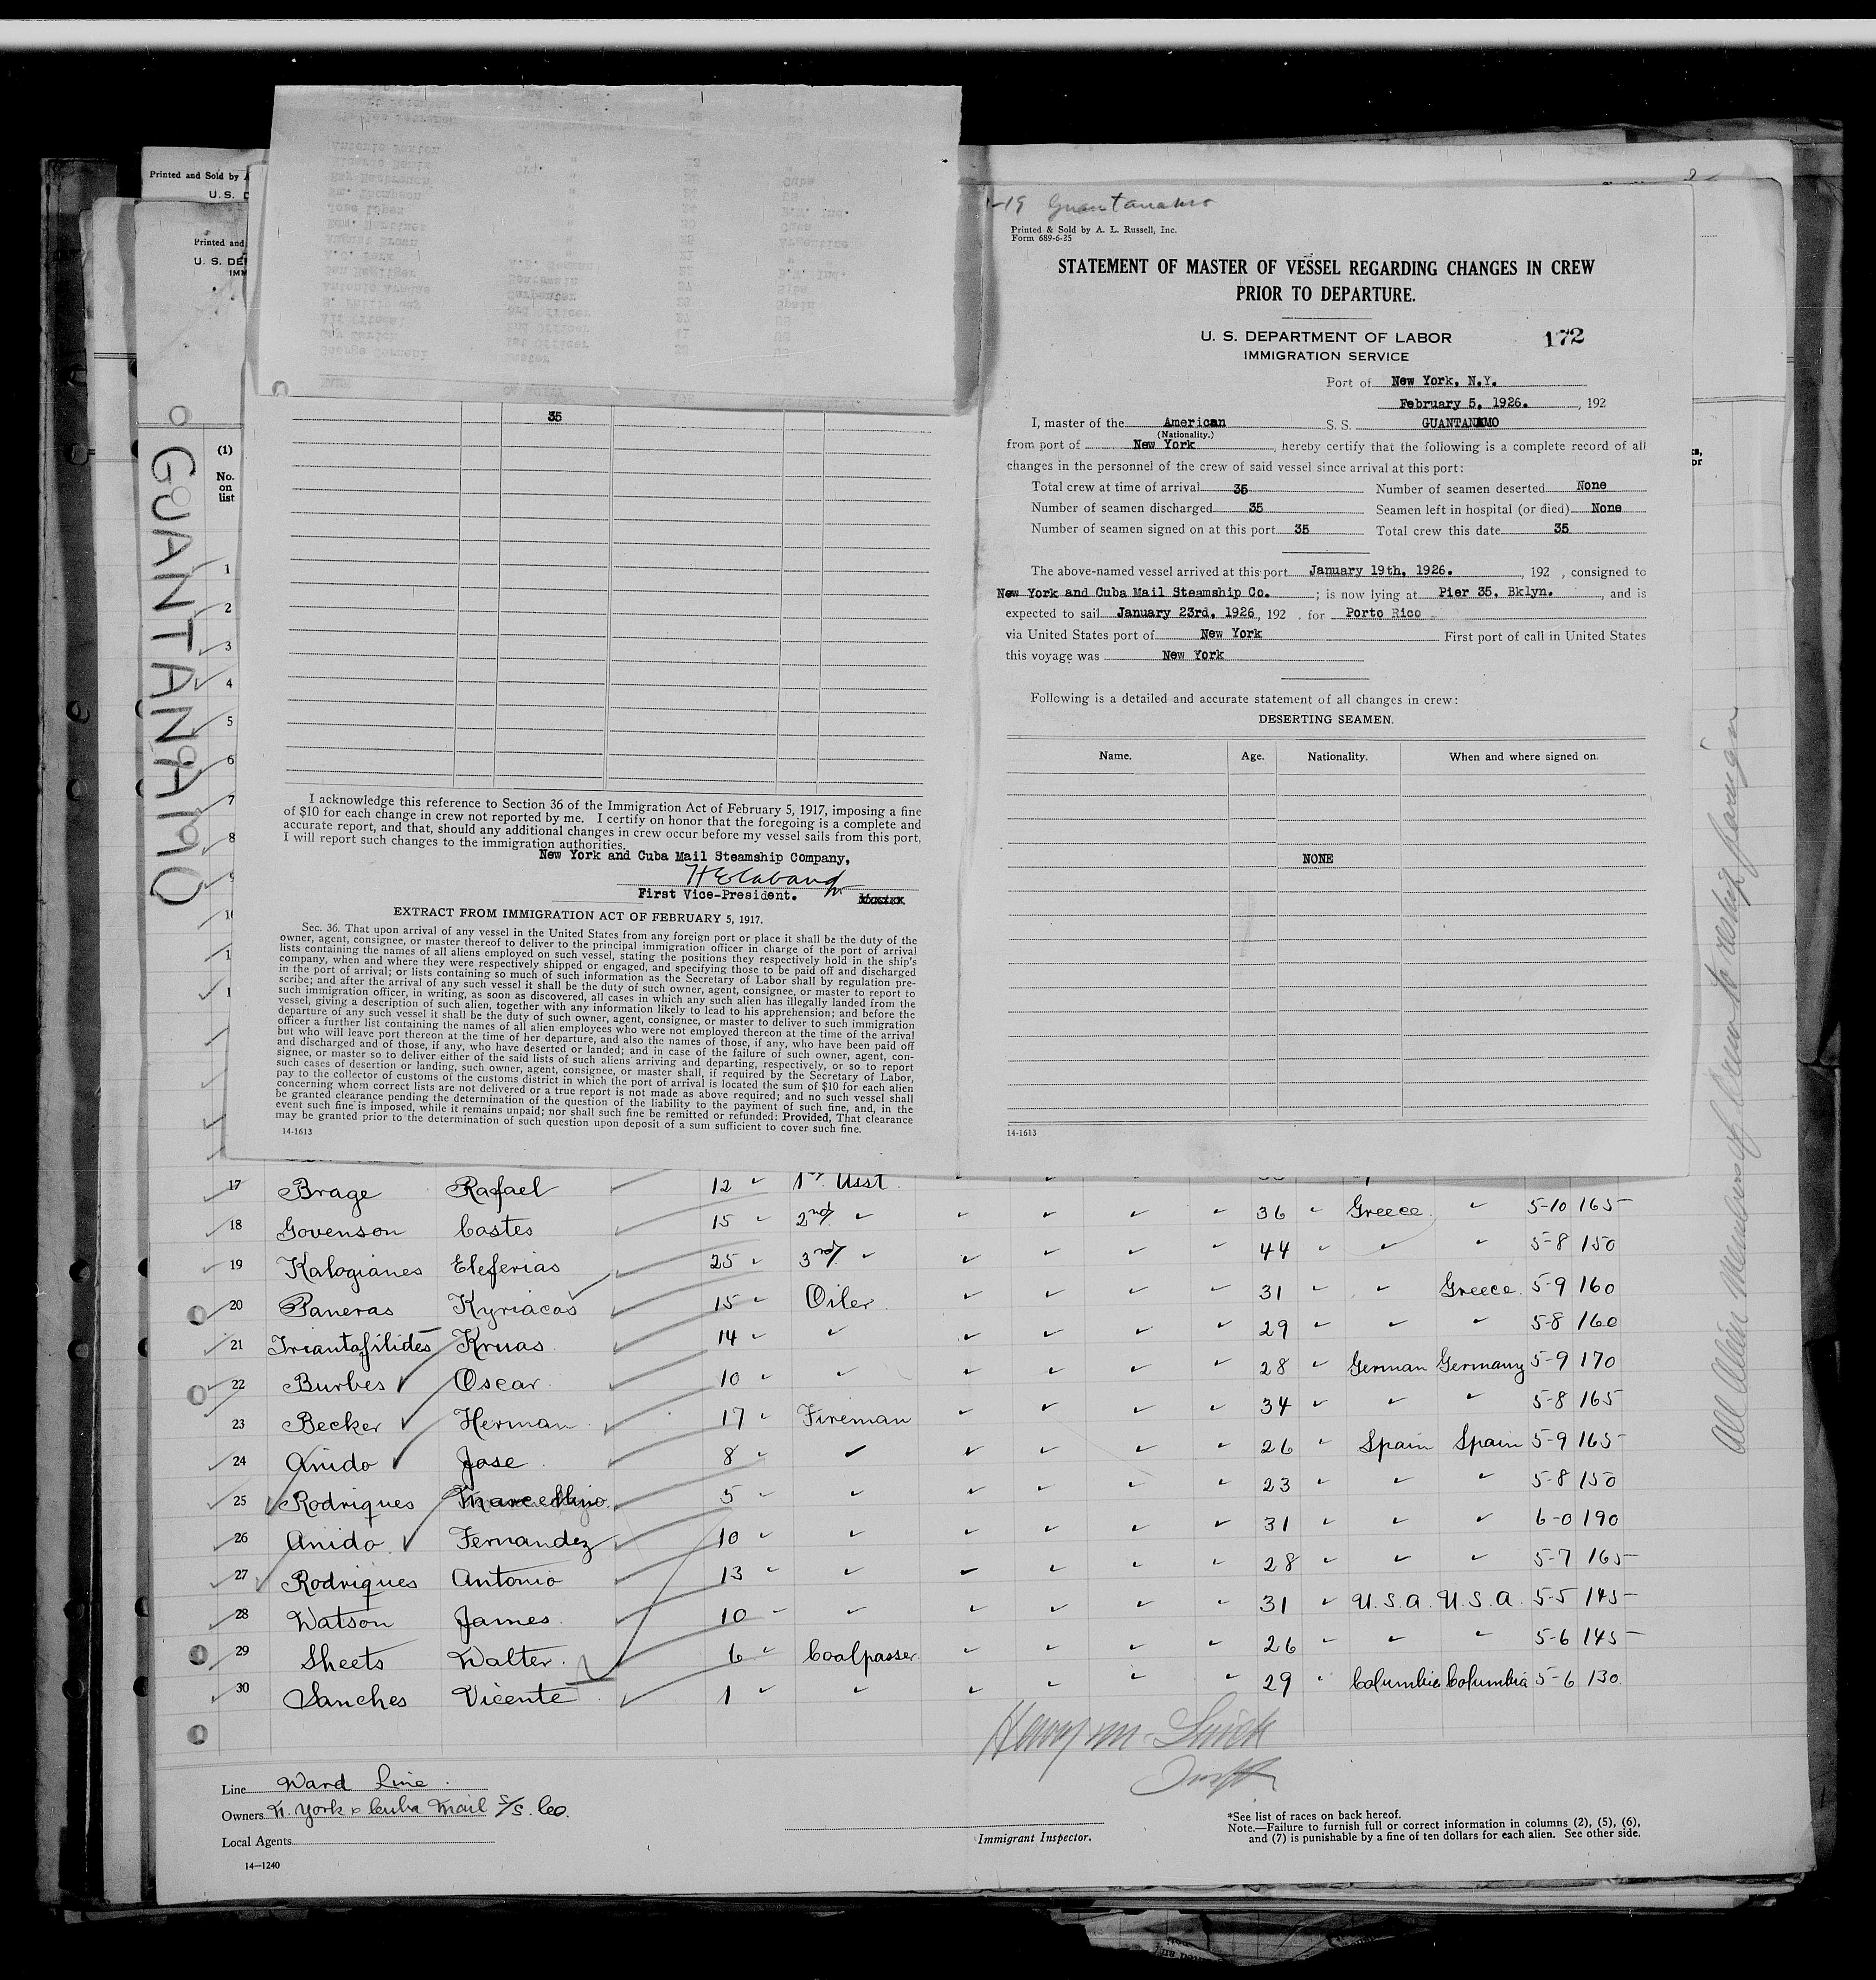 Printed and Sold by A
U.S. D
Printed and
U. S. DE
IMM
GUANTANAMO
(1)
No.
on
list
1
2
3
4
5
6
7
8
35
I acknowledge this reference to Section 36 of the Immigration Act of February 5, 1917, imposing a fine
of $10 for each change in crew not reported by me. I certify on honor that the foregoing is a complete and
accurate report, and that, should any additional changes in crew occur before my vessel sails from this port,
I will report such changes to the immigration authorities.
New York and Cuba Mail Steamship Company,
First Vice-President.
EXTRACT FROM IMMIGRATION ACT OF FEBRUARY 5, 1917.
Sec. 36. That upon arrival of any vessel in the United States from any foreign port or place it shall be the duty of the
owner, agent, consignee, or master thereof to deliver to the principal immigration officer in charge of the port of arrival
lists containing the names of all aliens employed on such vessel, stating the positions they respectively hold in the ship's
company, when and where they were respectively shipped or engaged, and specifying those to be paid off and discharged
in the port of arrival; or lists containing so much of such information as the Secretary of Labor shall by regulation pre-
scribe; and after the arrival of any such vessel it shall be the duty of such owner, agent, consignee, or master to report to
such immigration officer, in writing, as soon as discovered, all cases in which any such alien has illegally landed from the
vessel, giving a description of such alien, together with any information likely to lead to his apprehension; and before the
departure of any such vessel it shall be the duty of such owner, agent, consignee, or master to deliver to such immigration
officer a further list containing the names of all alien employees who were not employed thereon at the time of the arrival
but who will leave port thereon at the time of her departure, and also the names of those, if any, who have been paid off
and discharged and of those, if any, who have deserted or landed; and in case of the failure of such owner, agent, con-
signee, or master so to deliver either of the said lists of such aliens arriving and departing, respectively, or so to report
such cases of desertion or landing, such owner, agent, consignee, or master shall, if required by the Secretary of Labor,
pay to the collector of customs of the customs district in which the port of arrival is located the sum of $10 for each alien
concerning whom correct lists are not delivered or a true report is not made as above required; and no such vessel shall
be granted clearance pending the determination of the question of the liability to the payment of such fine, and, in the
event such fine is imposed, while it remains unpaid; nor shall such fine be remitted or refunded: Provided, That clearance
may be granted prior to the determination of such question upon deposit of a sum sufficient to cover such fine.
14-1613
1-19 Guantanamo
Printed & Sold by A. L. Russell, Inc.
Form 689-6-25
STATEMENT OF MASTER OF VESSEL REGARDING CHANGES IN CREW
PRIOR TO DEPARTURE.
U. S. DEPARTMENT OF LABOR 172
IMMIGRATION SERVICE
Port of New York, N.Y.
February 5, 1926. , 192
I, master of the American S. S. GUANTANAMO
(Nationality.)
from port of New York , hereby certify that the following is a complete record of all
changes in the personnel of the crew of said vessel since arrival at this port:
Total crew at time of arrival 35 Number of seamen deserted None
Number of seamen discharged 35 Seamen left in hospital (or died) None
Number of seamen signed on at this port 35 Total crew this date 35
The above-named vessel arrived at this port January 19th, 1926. , 192 , consigned to
New York and Cuba Mail Steamship Co. ; is now lying at Pier 35, Bklyn. , and is
expected to sail January 23rd, 1926 , 192 . for Porto Rico
via United States port of New York First port of call in United States
this voyage was New York
Following is a detailed and accurate statement of all changes in crew:
DESERTING SEAMEN.
Name. Age. Nationality. When and where signed on.
NONE
14-1613
All Alien Members of Crew to reship foreign
17 Brage Rafael 12 1st Asst.
18 Govenson Costes 15 2nd 36 Greece 5-10 165
19 Kalogianes Eleferias 25 3rd 44 5-8 150
20 Paneras Kyriacos 15 Oiler 31 Greece 5-9 160
21 Triantafilides Kruas 14 29 5-8 160
22 Burbes Oscar 10 28 German Germany 5-9 170
23 Becker Herman 17 Fireman 34 5-8 165
24 Anido Jose 8 26 Spain Spain 5-9 165
25 Rodriques Marcellino 5 23 5-8 150
26 Anido Fernandez 10 31 6-0 190
27 Rodriques Antonio 13 28 5-7 165
28 Watson James 10 31 U.S.A. U.S.A. 5-5 145
29 Sheets Walter 6 Coalpasser 26 5-6 145
30 Sanches Vicente 1 29 Columbia Columbia 5-6 130
Line Ward Line.
Owners N. York & Cuba Mail S/S. Co.
Local Agents
14-1240
Immigrant Inspector.
*See list of races on back hereof.
Note.—Failure to furnish full or correct information in columns (2), (5), (6),
and (7) is punishable by a fine of ten dollars for each alien. See other side.